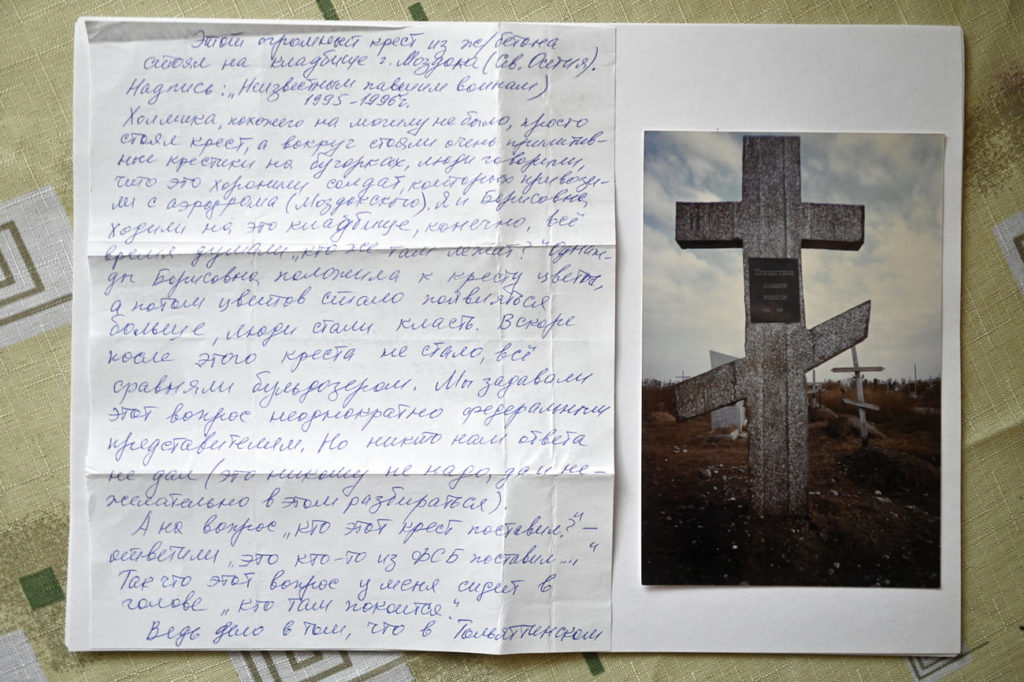 Этот огромный крест из ж/бетона
стоял на кладбище г. Моздока (Сев. Осетия).
Надпись: „Неизвестным павшим воинам)
1995-1996г.
Холмика, похожего на могилу не было, просто
стоял крест, а вокруг стояли очень примитив-
ные крестики на бугорках, люди говорили,
что это хоронили солдат, которых привози-
ли с аэродрома (Моздокского). Я и Борисовна
ходили на это кладбище, конечно, всё
время думали, „кто же там лежит?" Однаж-
ды Борисовна положила к кресту цветы,
а потом цветов стало появляться
больше, люди стали класть. Вскоре
после этого креста не стало, всё
сравняли бульдозером. Мы задавали
этот вопрос неоднократно федеральным
представителям. Но никто нам ответа
не дал (это никому не надо, да и не-
желательно в этом разбираться).
А на вопрос „кто этот крест поставил?" –
ответили „это кто-то из ФСБ поставил..."
Так что этот вопрос у меня сидит в
голове „кто там покоится".
Ведь дело в том, что в Тольяттинском
Неизвестным
павшим
воинам